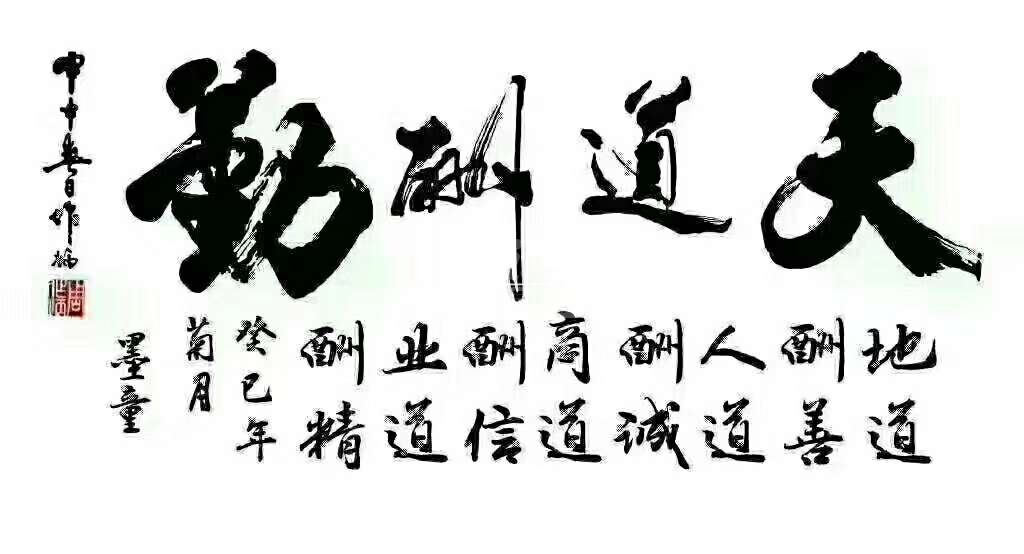 天道酬勤
地道
酬善
人道
酬诚
商道
酬信
业道
酬精
癸巳年
菊月
墨童
春日作